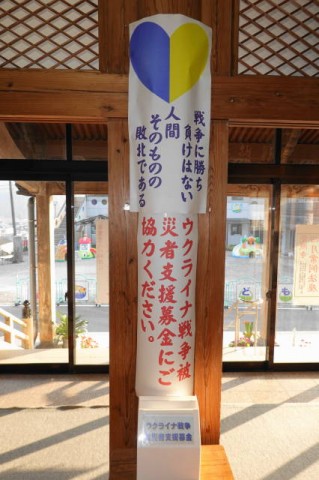 戦争に勝ち
負けはない
人間
そのものの
敗北である
ウクライナ戦争被
災者支援募金にご
協力ください。
ウクライナ戦争
被災者支援募金